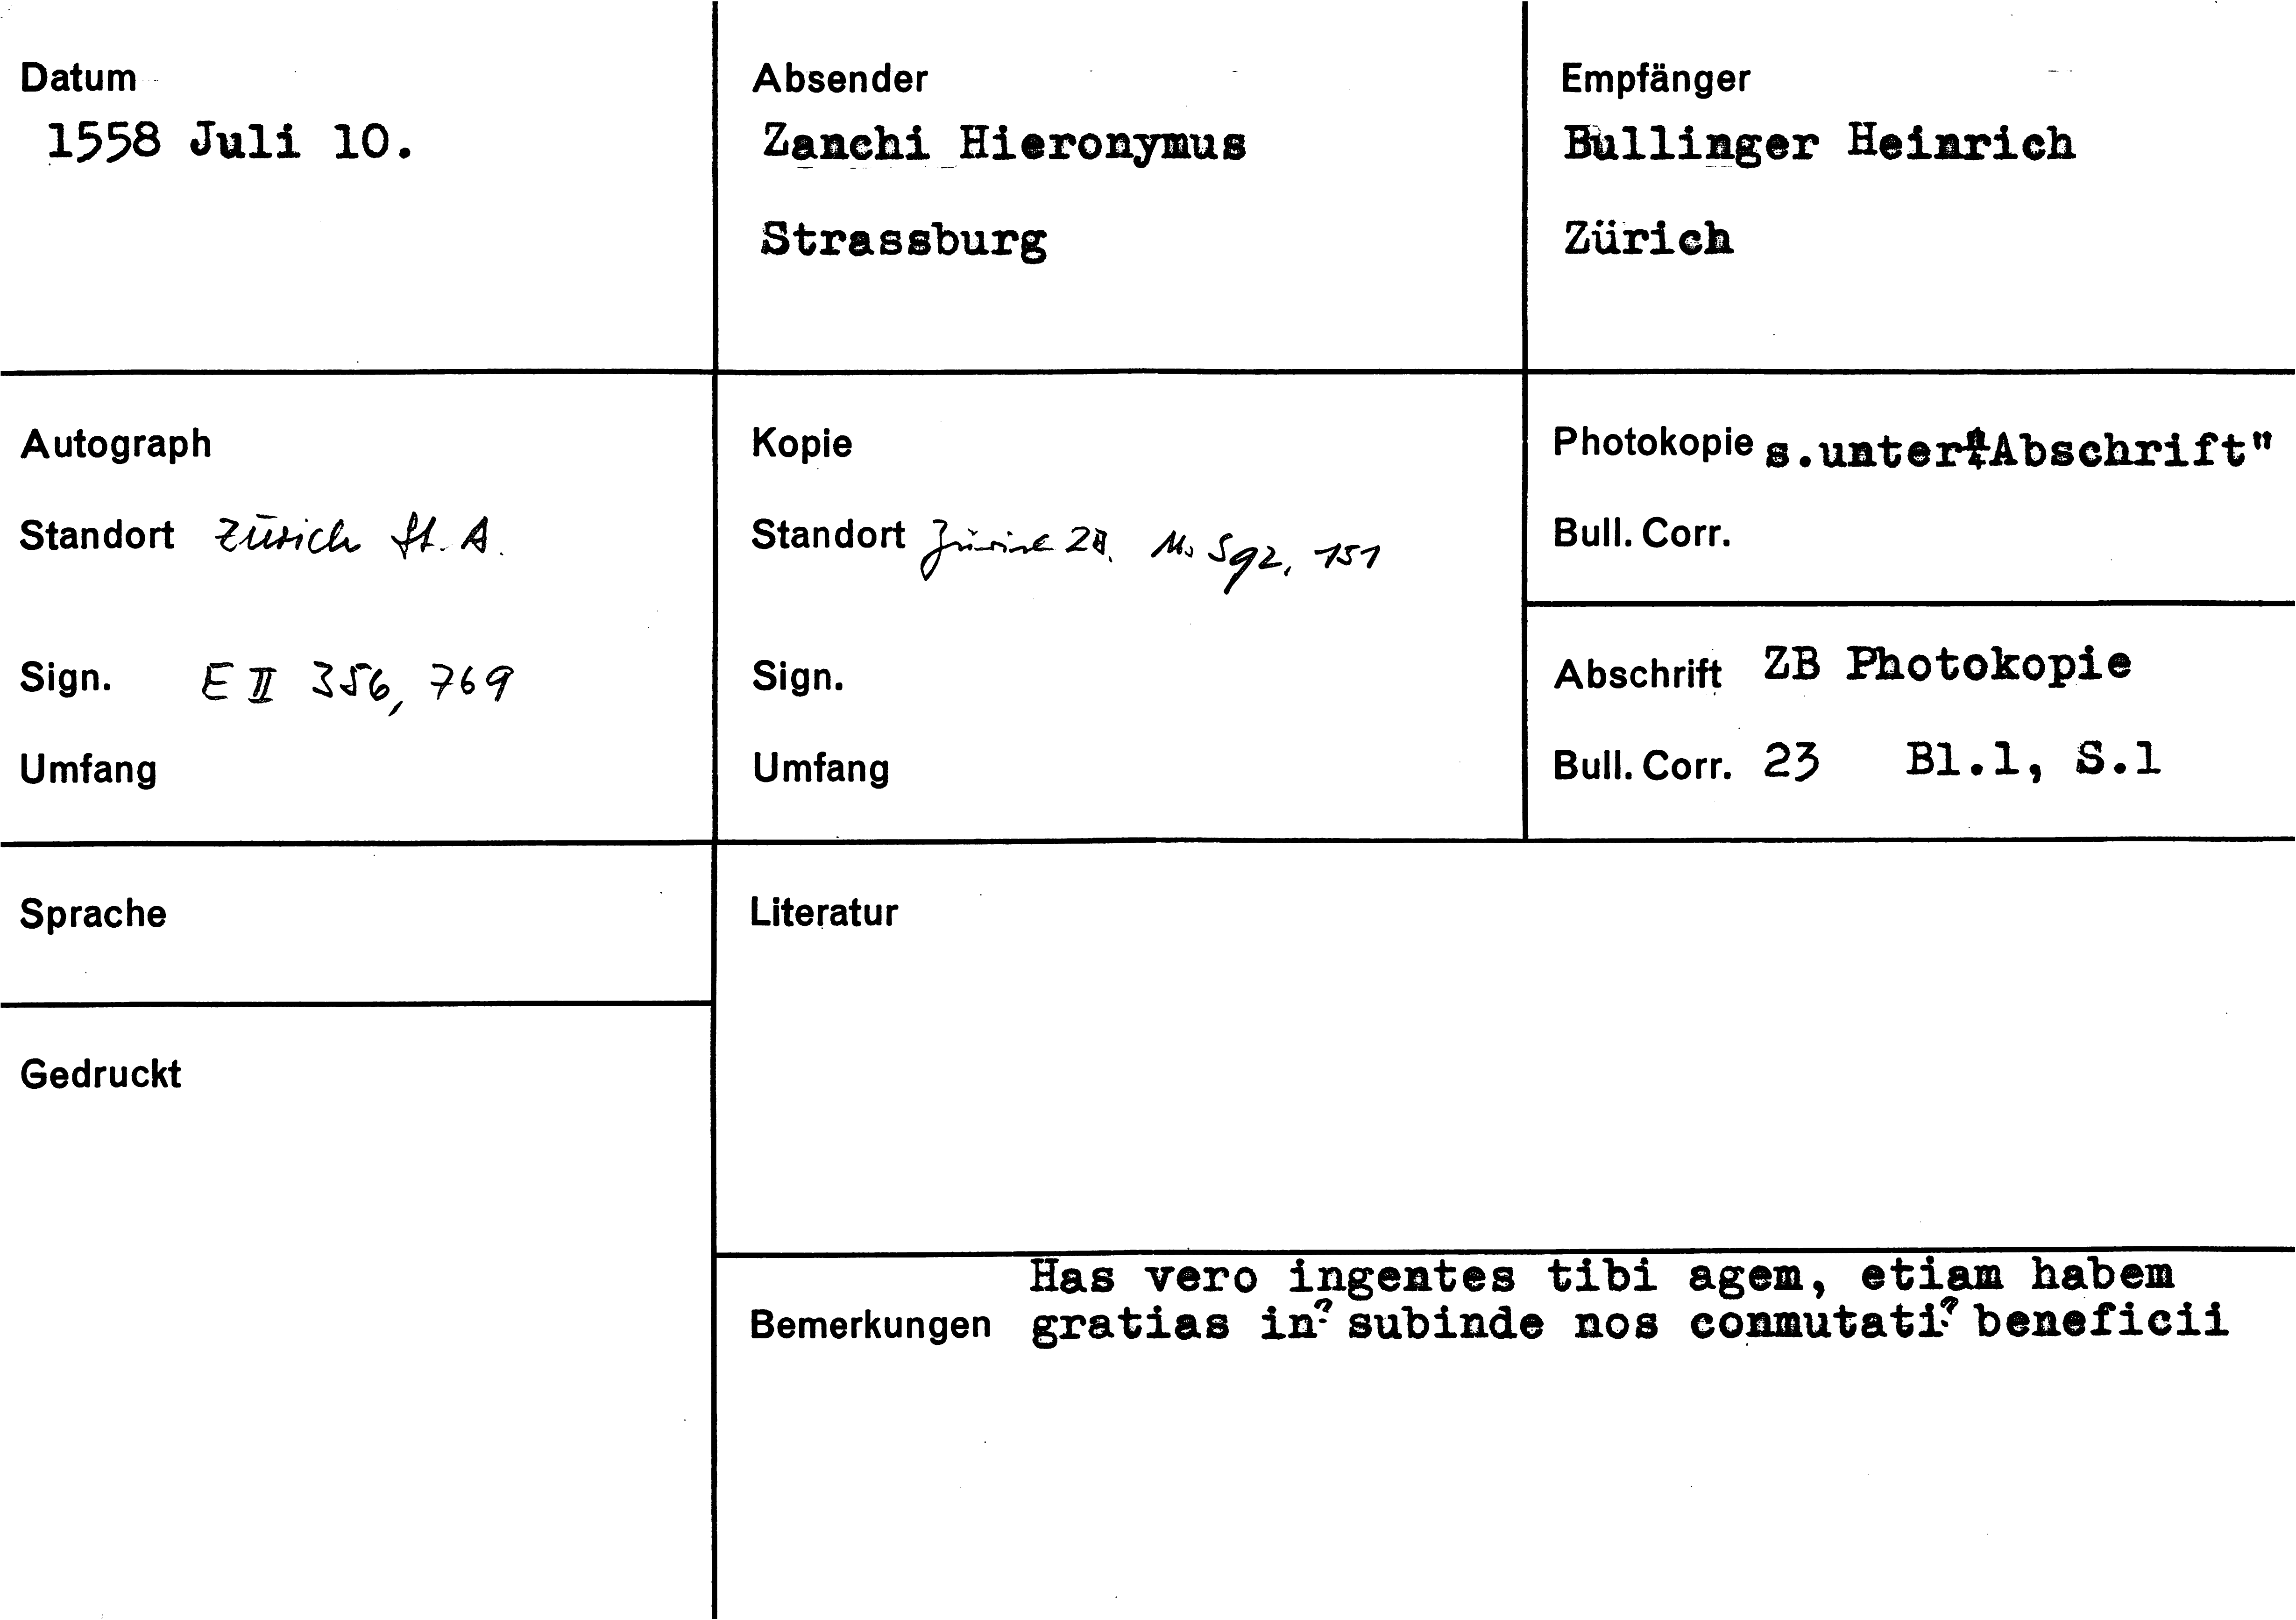 Datum
1558 Juli 10.
Absender
Zanchi Hieronymus
Strassburg
Empfänger
Bullinger Heinrich
Zürich
Autograph
Standort Zürich St. A.
Sign. E II 356, 769
Umfang
Kopie
Standort Zürich ZB. Ms S 92, 151
Sign.
Umfang
Photokopie s.unter "Abschrift"
Bull. Corr.
Abschrift ZB Photokopie
Bull. Corr. 23 Bl.1, S.1
Sprache
Literatur
Gedruckt
Has vero ingentes tibi agem, etiam habem
Bemerkungen gratias in? subinde nos conmutati? beneficii